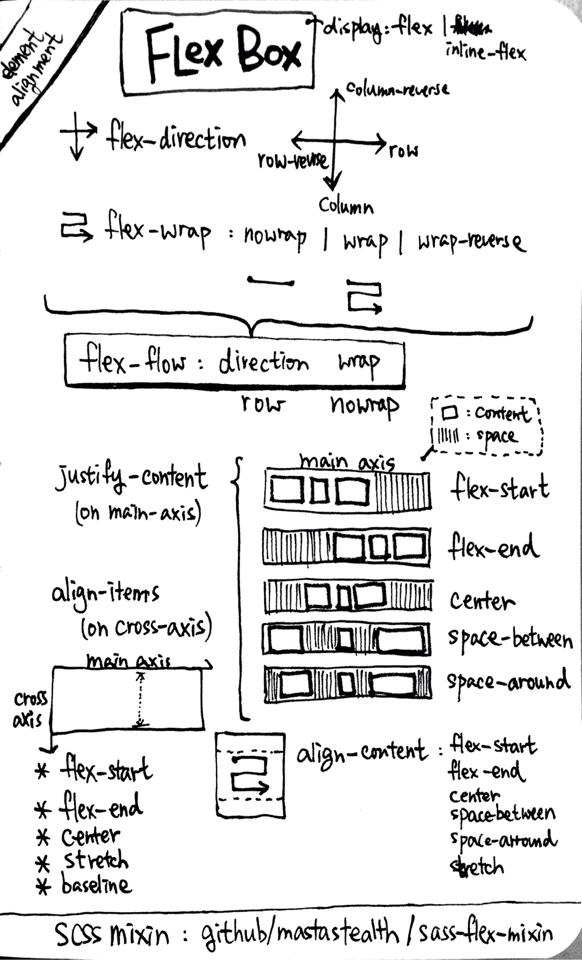 element
alignment
Flex Box
display: flex |
inline-flex
flex-direction
column-reverse
row-reverse
row
column
flex-wrap : nowrap | wrap | wrap-reverse
flex-flow : direction wrap
row nowrap
: content
: space
justify-content
(on main-axis)
main axis
flex-start
flex-end
center
space-between
space-around
align-items
(on cross-axis)
main axis
cross
axis
* flex-start
* flex-end
* center
* stretch
* baseline
align-content : flex-start
flex-end
center
space-between
space-around
stretch
SCSS mixin : github/mastastealth/sass-flex-mixin